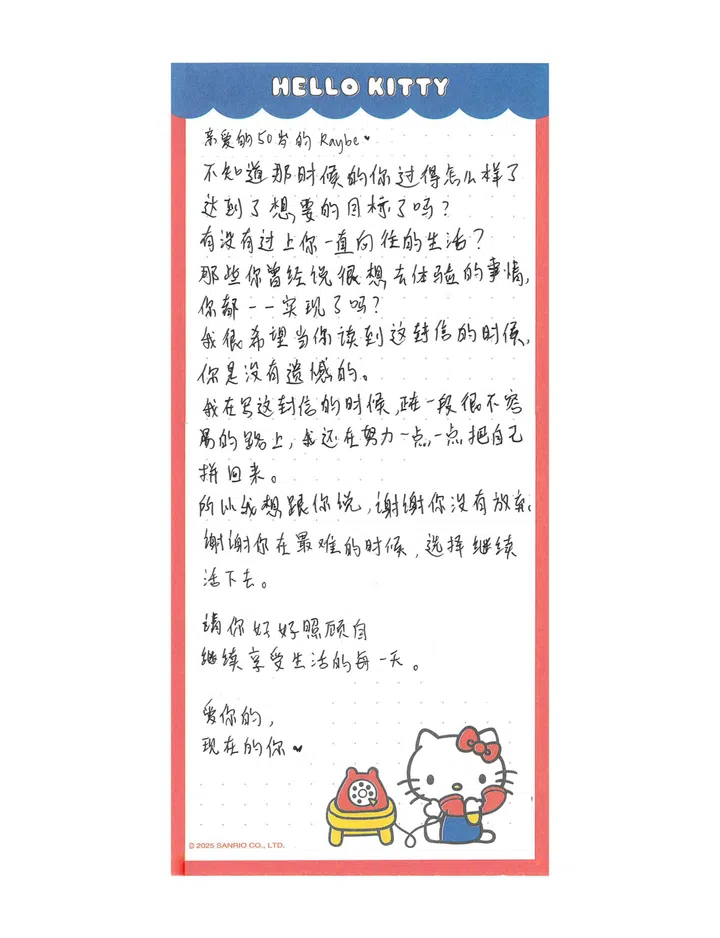 HELLO KITTY
亲爱的50岁的Raybe♥
不知道那时候的你过得怎么样了
达到了想要的目标了吗？
有没有过上你一直向往的生活？
那些你曾经说很想去体验的事情，
你都一一实现了吗？
我很希望当你读到这封信的时候，
你是没有遗憾的。
我在写这封信的时候，正在一段很不容
易的路上，我还在努力一点一点把自己
拼回来。
所以我想跟你说，谢谢你没有放弃。
谢谢你在最难的时候，选择继续
活下去。
请你好好照顾自
继续享受生活的每一天。
爱你的，
现在的你♥
© 2025 SANRIO CO., LTD.